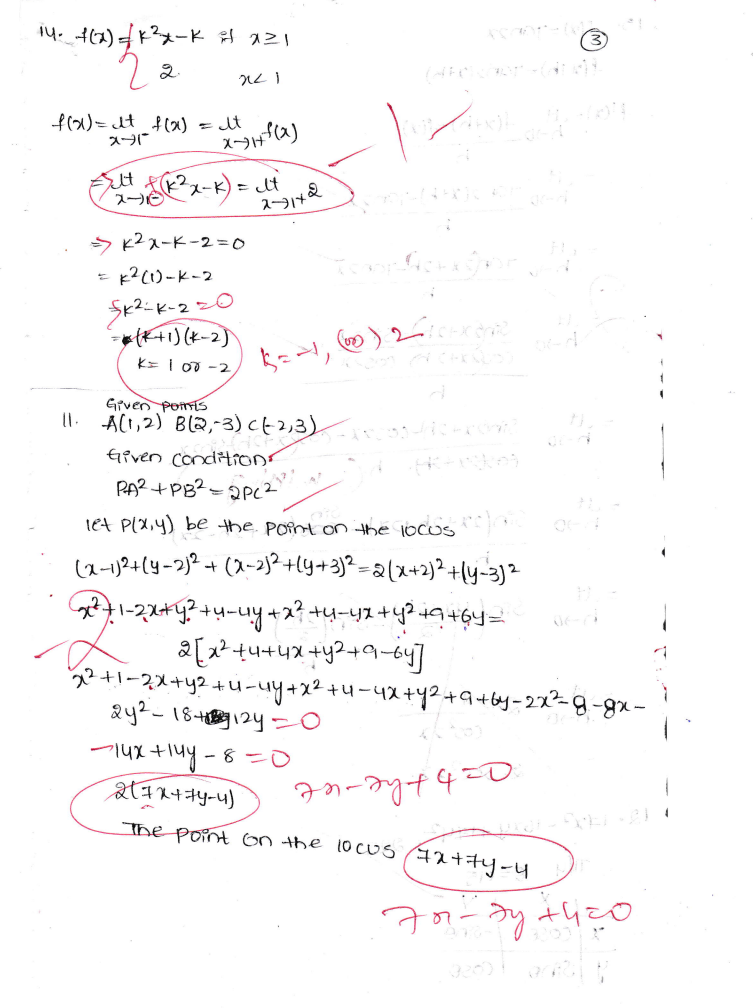 3
14. f(x) = { k²x-k if x≥1
2 x<1
f(x) = lt x→1⁻ f(x) = lt x→1+ f(x)
⇒ lt x→1⁻ (k²x-k) = lt x→1+ 2
⇒ k²x-k-2=0
= k²(1)-k-2
k²-k-2 =0
= (k+1)(k-2)
k= 1 or -2 k = -1, (or) 2
Given points
11. A(1,2) B(2,-3) C(-2,3)
Given condition
PA²+PB²=2PC²
let P(x,y) be the point on the locus
(x-1)²+(y-2)² + (x-2)²+(y+3)²=2(x+2)²+(y-3)²
x²+1-2x+y²+4-4y+x²+4-4x+y²+9+6y=
2[x²+4+4x+y²+9-6y]
x²+1-2x+y²+4-4y+x²+4-4x+y²+9+6y-2x²-8-8x-
2y²-18+12y =0
-14x+14y-8 =0
2(7x+7y-4) 7x-7y+4=0
The point on the locus 7x+7y-4
7x-7y+4=0